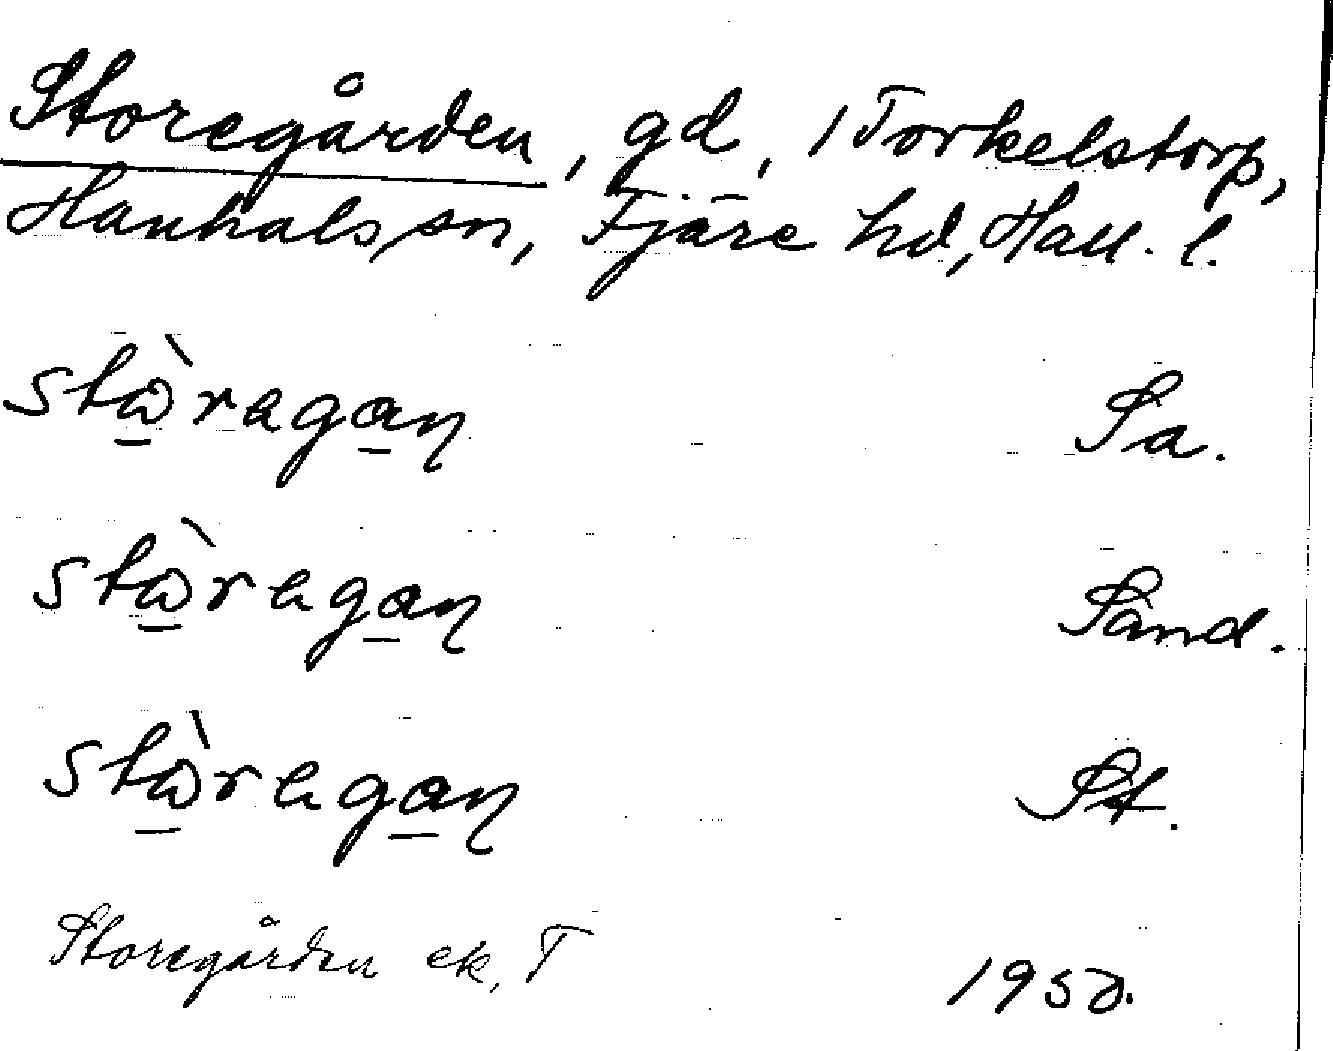 Storegården, gd, i Torkelstorp,
Hanhals sn, Fjäre hd, Hall. l.
stɷ̀ragaɳ Sa.
stɷ̀ragaɳ Sand.
stɷ̀ragaɳ St.
Storegården ek, T 195